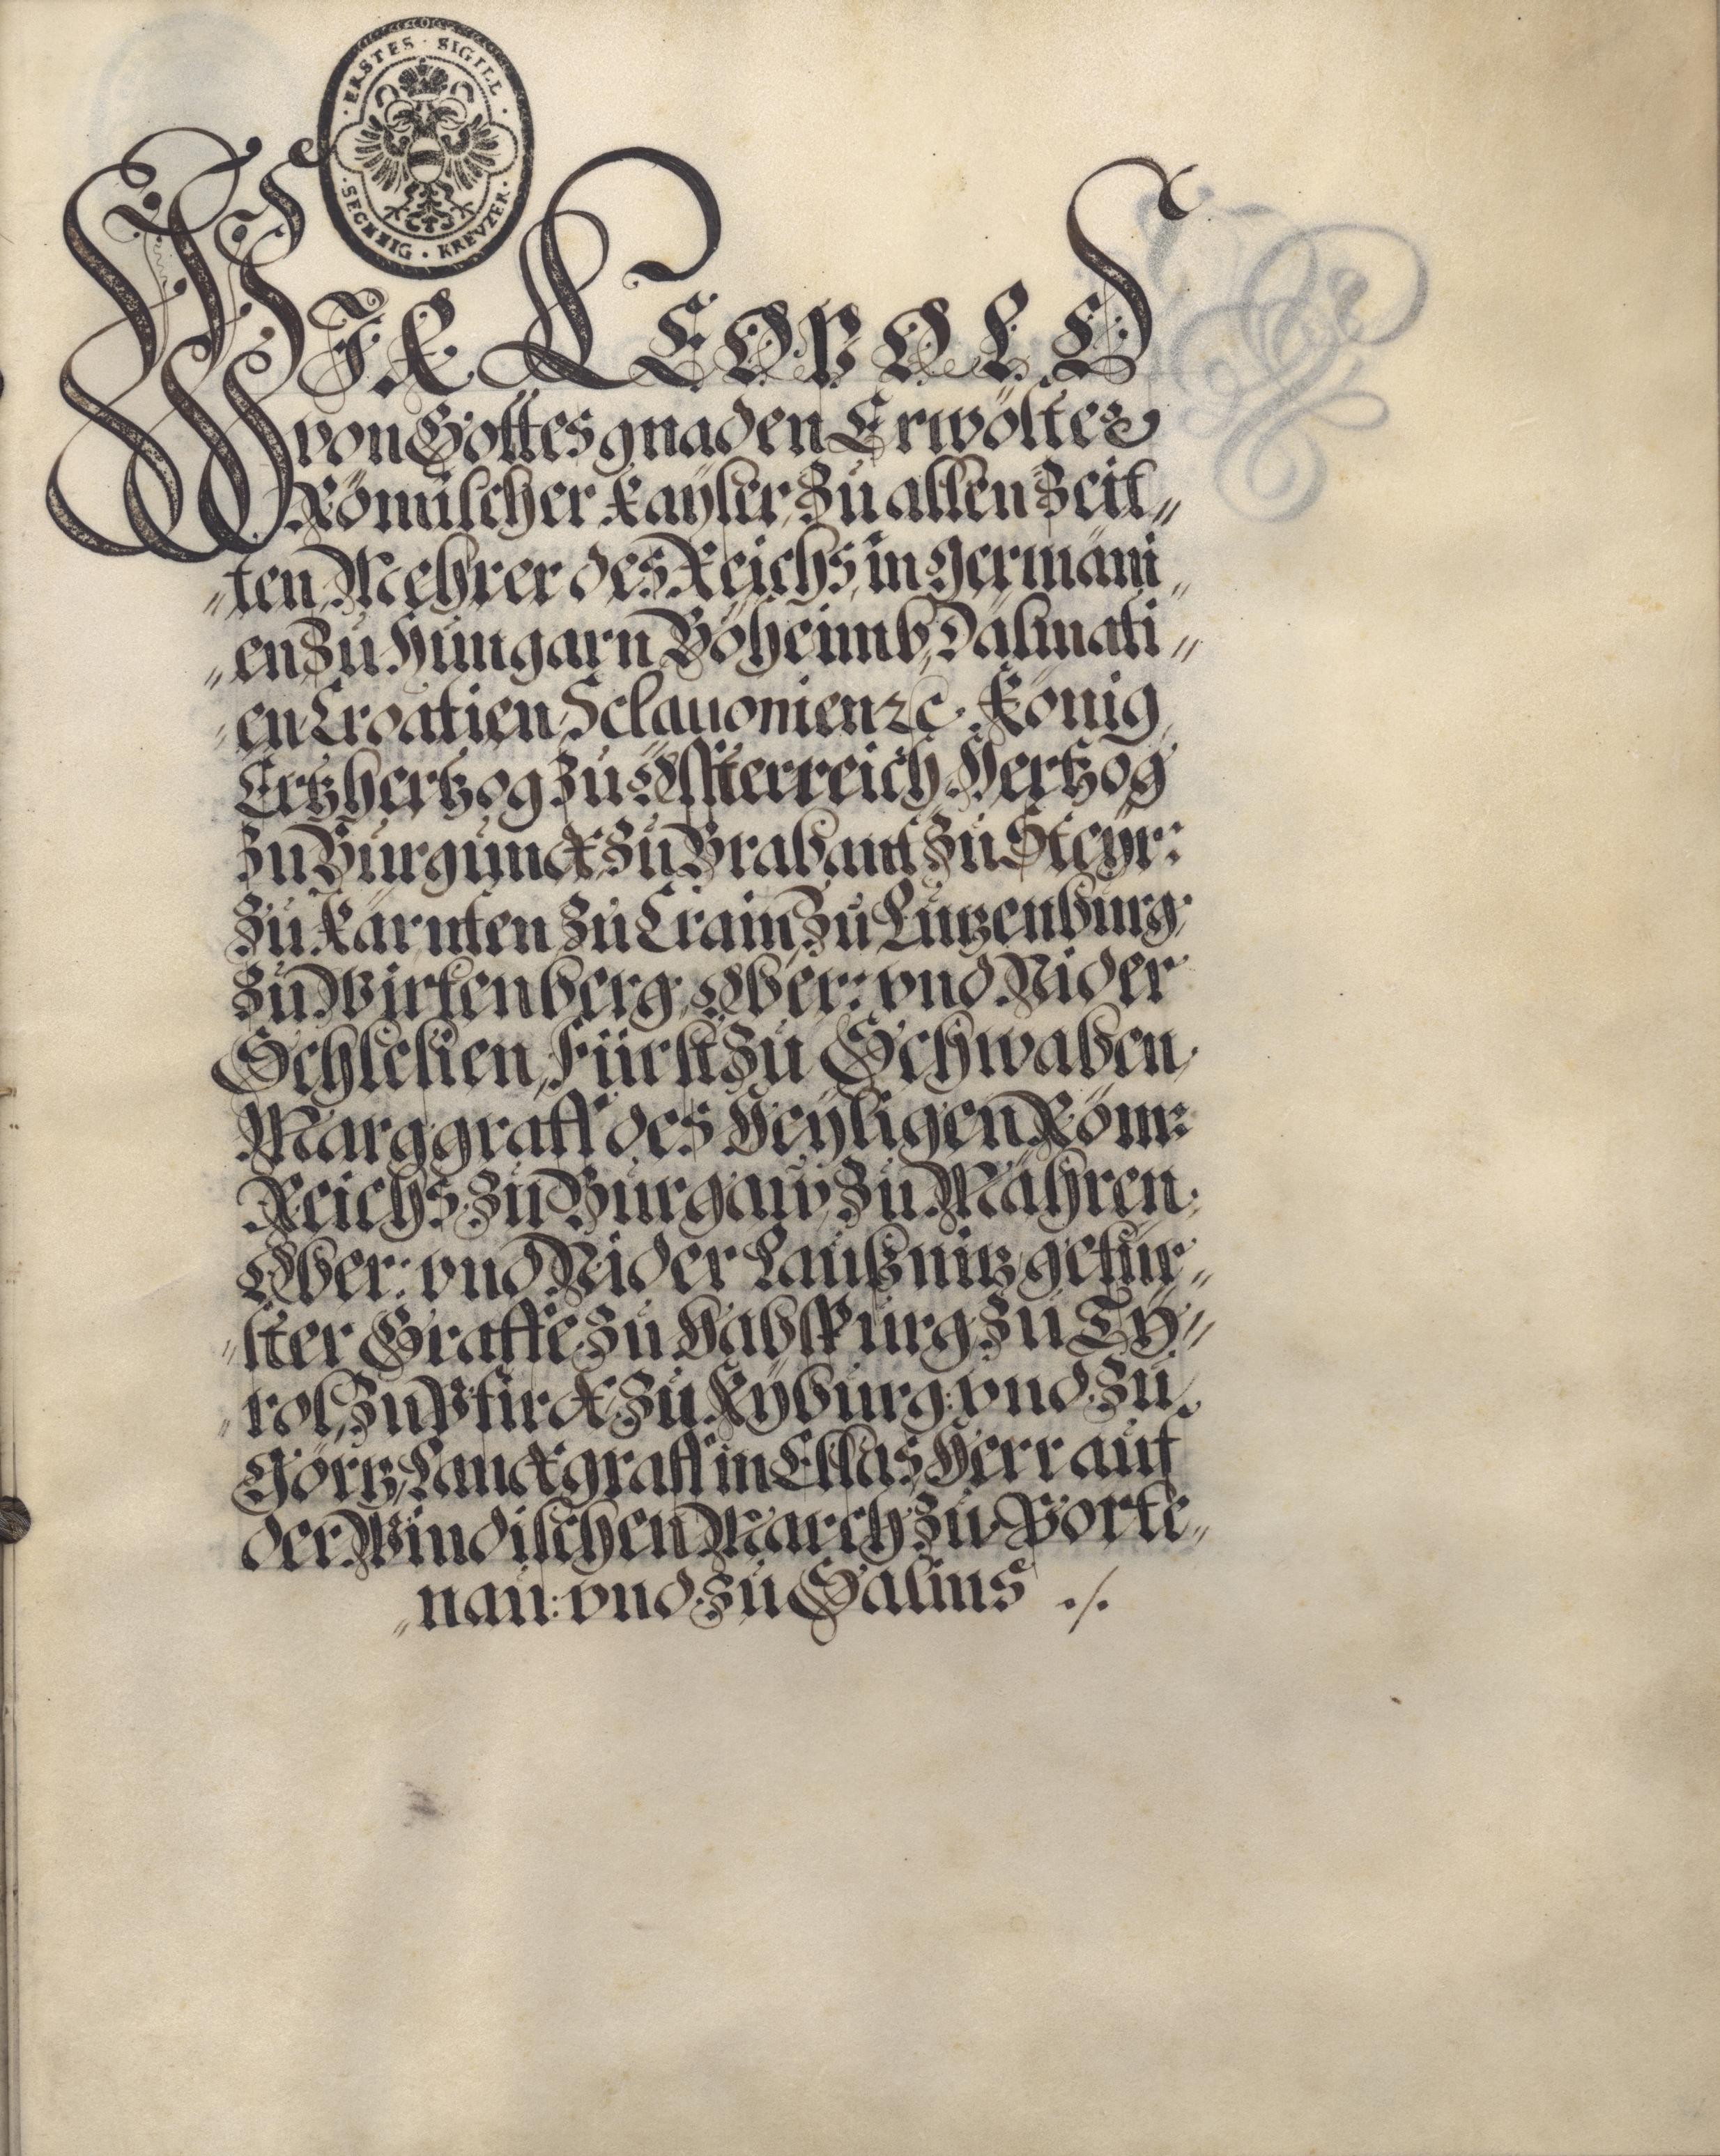 ERSTES · SIGILL · SECHZIG · KREVZER ·
WIR LEOPOLD
von Gottes gnaden Erwölter
Römischer Kayser, Zu allen Zeit„
„ten Mehrer des Reichs, in germani„
„en Zu Hungarn Böheimb, Dalmati„
„en Croatien Sclauonien ꝛc. König,
Ertzhertzog Zu Össterreich, Hertzog
Zu Burgundt, Zu Brabant Zu Steyr:
Zu Kärnten Zu Crain, Zu Lutzenburg,
Zu Wirtenberg, Ober: vnd Nider
Schlesien, Fürst Zu Schwaben,
Marggraff des Heyligen Röm:
Reichs, Zu Burgaw, Zu Mähren,
Ober: vnd Nider Laußnitz, gefür„
„ster Graffe Zu Habspurg, Zu Ty„
„rol, Zu Pfirdt, Zu Kyburg: vnd Zu
Görtz, Landtgraff in Elsas, Herr auf
der Windischen March, Zu Porte„
„nau: vnd Zu Salins ./.